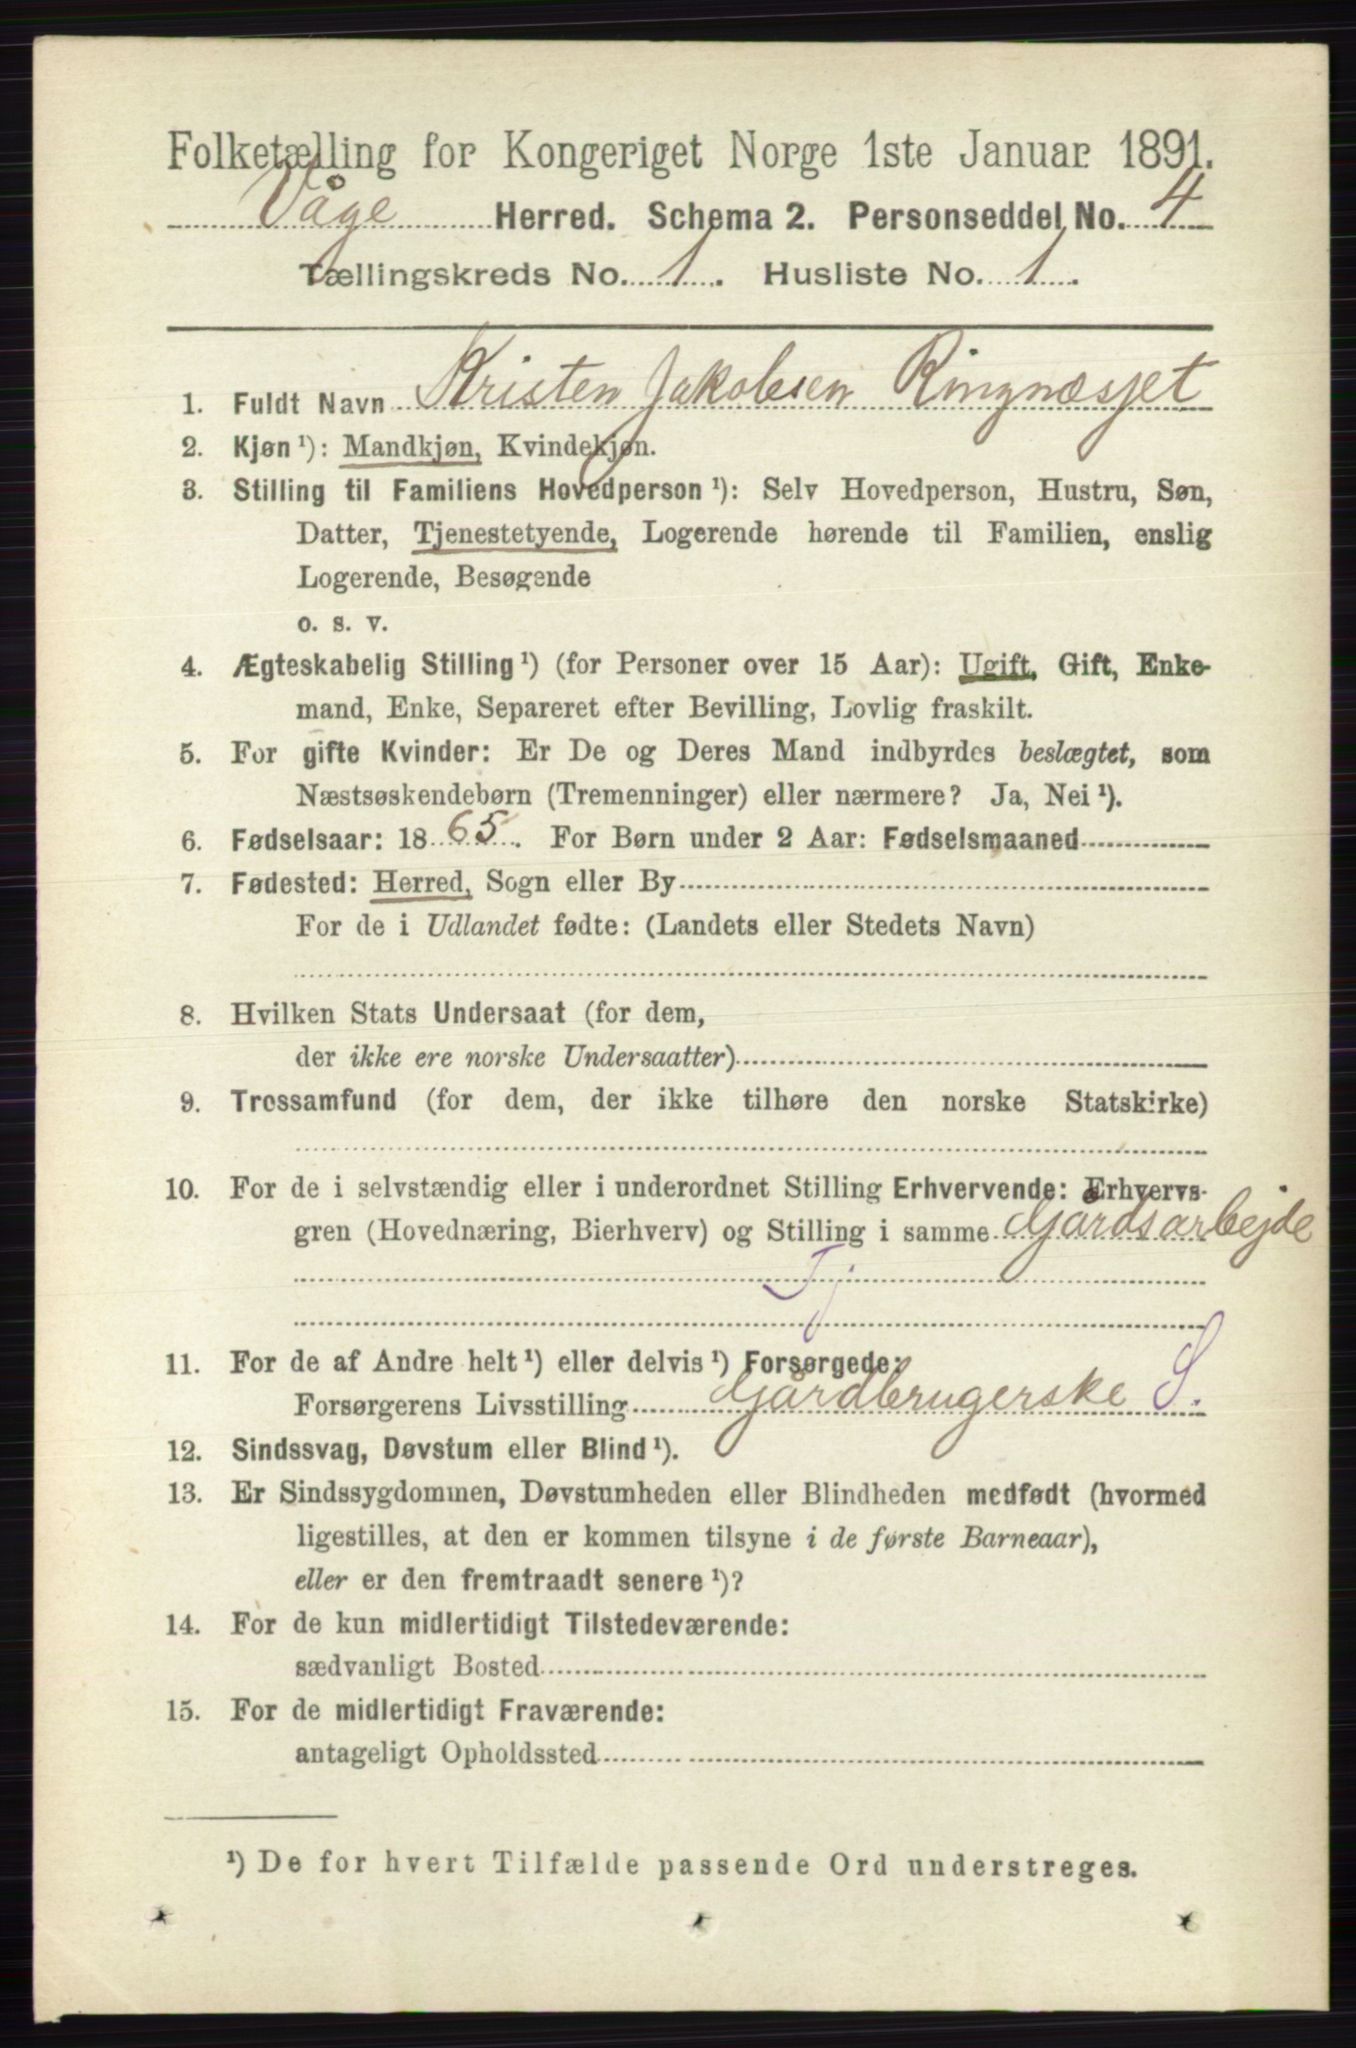 Folketælling for Kongeriget Norge 1ste Januar 1891.
Våge Herred. Schema 2. Personseddel No. 4
Tællingskreds No. 1. Husliste No. 1.
1. Fuldt Navn Kristen Jakobsen Ringnæsjet
2. Kjøn¹): Mandkjøn, Kvindekjøn.
3. Stilling til Familiens Hovedperson¹): Selv Hovedperson, Hustru, Søn,
Datter, Tjenestetyende, Logerende hørende til Familien, enslig
Logerende, Besøgende
o. s. v.
4. Ægteskabelig Stilling¹) (for Personer over 15 Aar): Ugift, Gift, Enke-
mand, Enke, Separeret efter Bevilling, Lovlig fraskilt.
5. For gifte Kvinder: Er De og Deres Mand indbyrdes beslægtet, som
Næstsøskendebørn (Tremenninger) eller nærmere? Ja, Nei¹).
6. Fødselsaar: 1865. For Børn under 2 Aar: Fødselsmaaned
7. Fødested: Herred, Sogn eller By
For de i Udlandet fødte: (Landets eller Stedets Navn)
8. Hvilken Stats Undersaat (for dem,
der ikke ere norske Undersaatter)
9. Trossamfund (for dem, der ikke tilhøre den norske Statskirke)
10. For de i selvstændig eller i underordnet Stilling Erhvervende: Erhvervs-
gren (Hovednæring, Bierhverv) og Stilling i samme Gårdsarbejde
Tj
11. For de af Andre helt¹) eller delvis¹) Forsørgede:
Forsørgerens Livsstilling Gårdbrugerske S.
12. Sindssvag, Døvstum eller Blind¹).
13. Er Sindssygdommen, Døvstumheden eller Blindheden medfødt (hvormed
ligestilles, at den er kommen tilsyne i de første Barneaar),
eller er den fremtraadt senere¹)?
14. For de kun midlertidigt Tilstedeværende:
sædvanligt Bosted
15. For de midlertidigt Fraværende:
antageligt Opholdssted
¹) De for hvert Tilfælde passende Ord understreges.